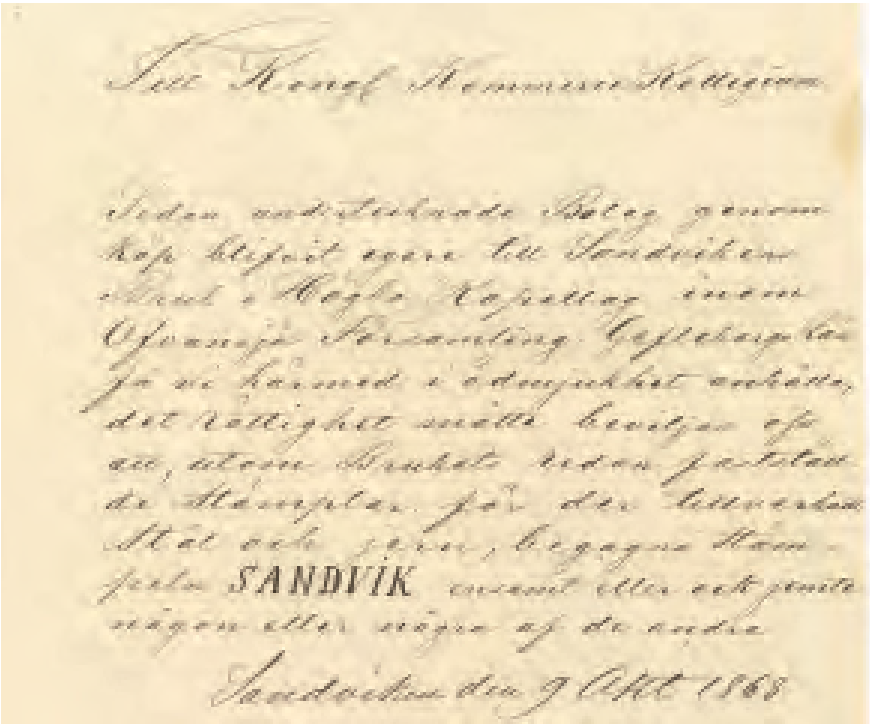 Till Kongl Kommerse Kollegium
Sedan undertecknade Bolag genom
köp blifvit egare till Sandvikens
Bruk i Högbo Kapellag inom
Ofvansjö Församling Gefleborgs Län
få vi härmed i ödmjukhet anhålla,
det rättighet måtte beviljas oss
att, utom Brukets redan fastställ-
de Stämplar för der tillverkadt
Stål och jern, begagna Stäm-
peln SANDVIK ensamt eller ock jemte
någon eller några af de andra
Sandviken den 9 Okt 1868